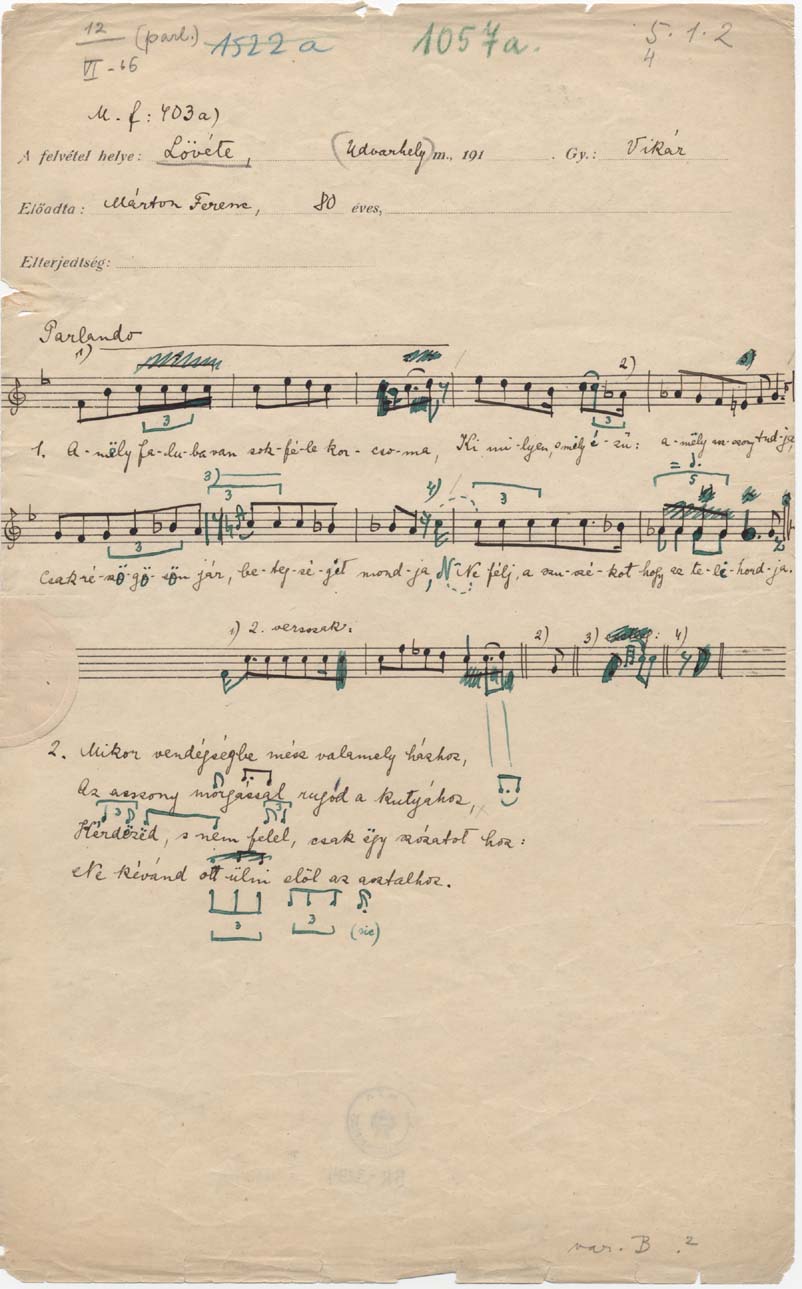 12 (parl.) 1522a 1057a. 5.1.2
VI-66 4
M. f: 403a)
A felvétel helye: Lövéte, (Udvarhely) m., 191 . Gy.: Vikár
Előadta: Márton Ferenc, 80 éves,
Elterjedtség:
Parlando
1) 2) 5)
3 3
1. A-mely fa-lu-ba van sok-fé-le kor-cso-ma, Ki mi-lyen, s mely é-zü: a-mely asszony tud-ja,
3) = 5
3 4) 3
3
Csak ré-szö-gö-sön jár, be-teg-sé-gët mond-ja, Ne félj, a szu-szé-kot hogy az te-lé-hord-ja.
1) 2. versszak: 2) 3) 4)
2. Mikor vendégségbe mész valamely házhoz,
Az asszony morgással rugód a kutyához,
3 3
Kérdëzëd, s nem felel, csak ëgy szózatot hoz:
Ne kévánd ott ülni elöl az asztalhoz.
3 3 (sic)
var. B .2